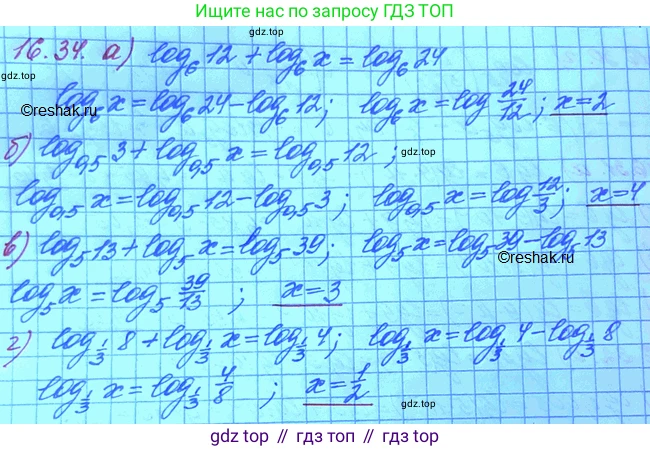 Ищите нас по запросу ГДЗ ТОП
16.34. а) log₆12 + log₆x = log₆24
gdz top
log₆x = log₆24 - log₆12; log₆x = log 24/12; x = 2
©reshak.ru
©reshak.ru
б) log₀,₅3 + log₀,₅x = log₀,₅12;
gdz top
log₀,₅x = log₀,₅12 - log₀,₅3; log₀,₅x = log 12/3; x = 4
в) log₅13 + log₅x = log₅39; log₅x = log₅39 - log₅13
©reshak.ru
log₅x = log₅ 39/13; x = 3
г) log_{1/3} 8 + log_{1/3} x = log_{1/3} 4; log_{1/3} x = log_{1/3} 4 - log_{1/3} 8
gdz top
log_{1/3} x = log_{1/3} 4/8; x = 1/2
gdz top
gdz top // гдз топ // gdz top // гдз топ